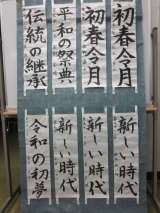 初春令月
初春令月
平和の祭典
伝統の継承
新しい時代
新しい時代
新しい時代
令和の初夢